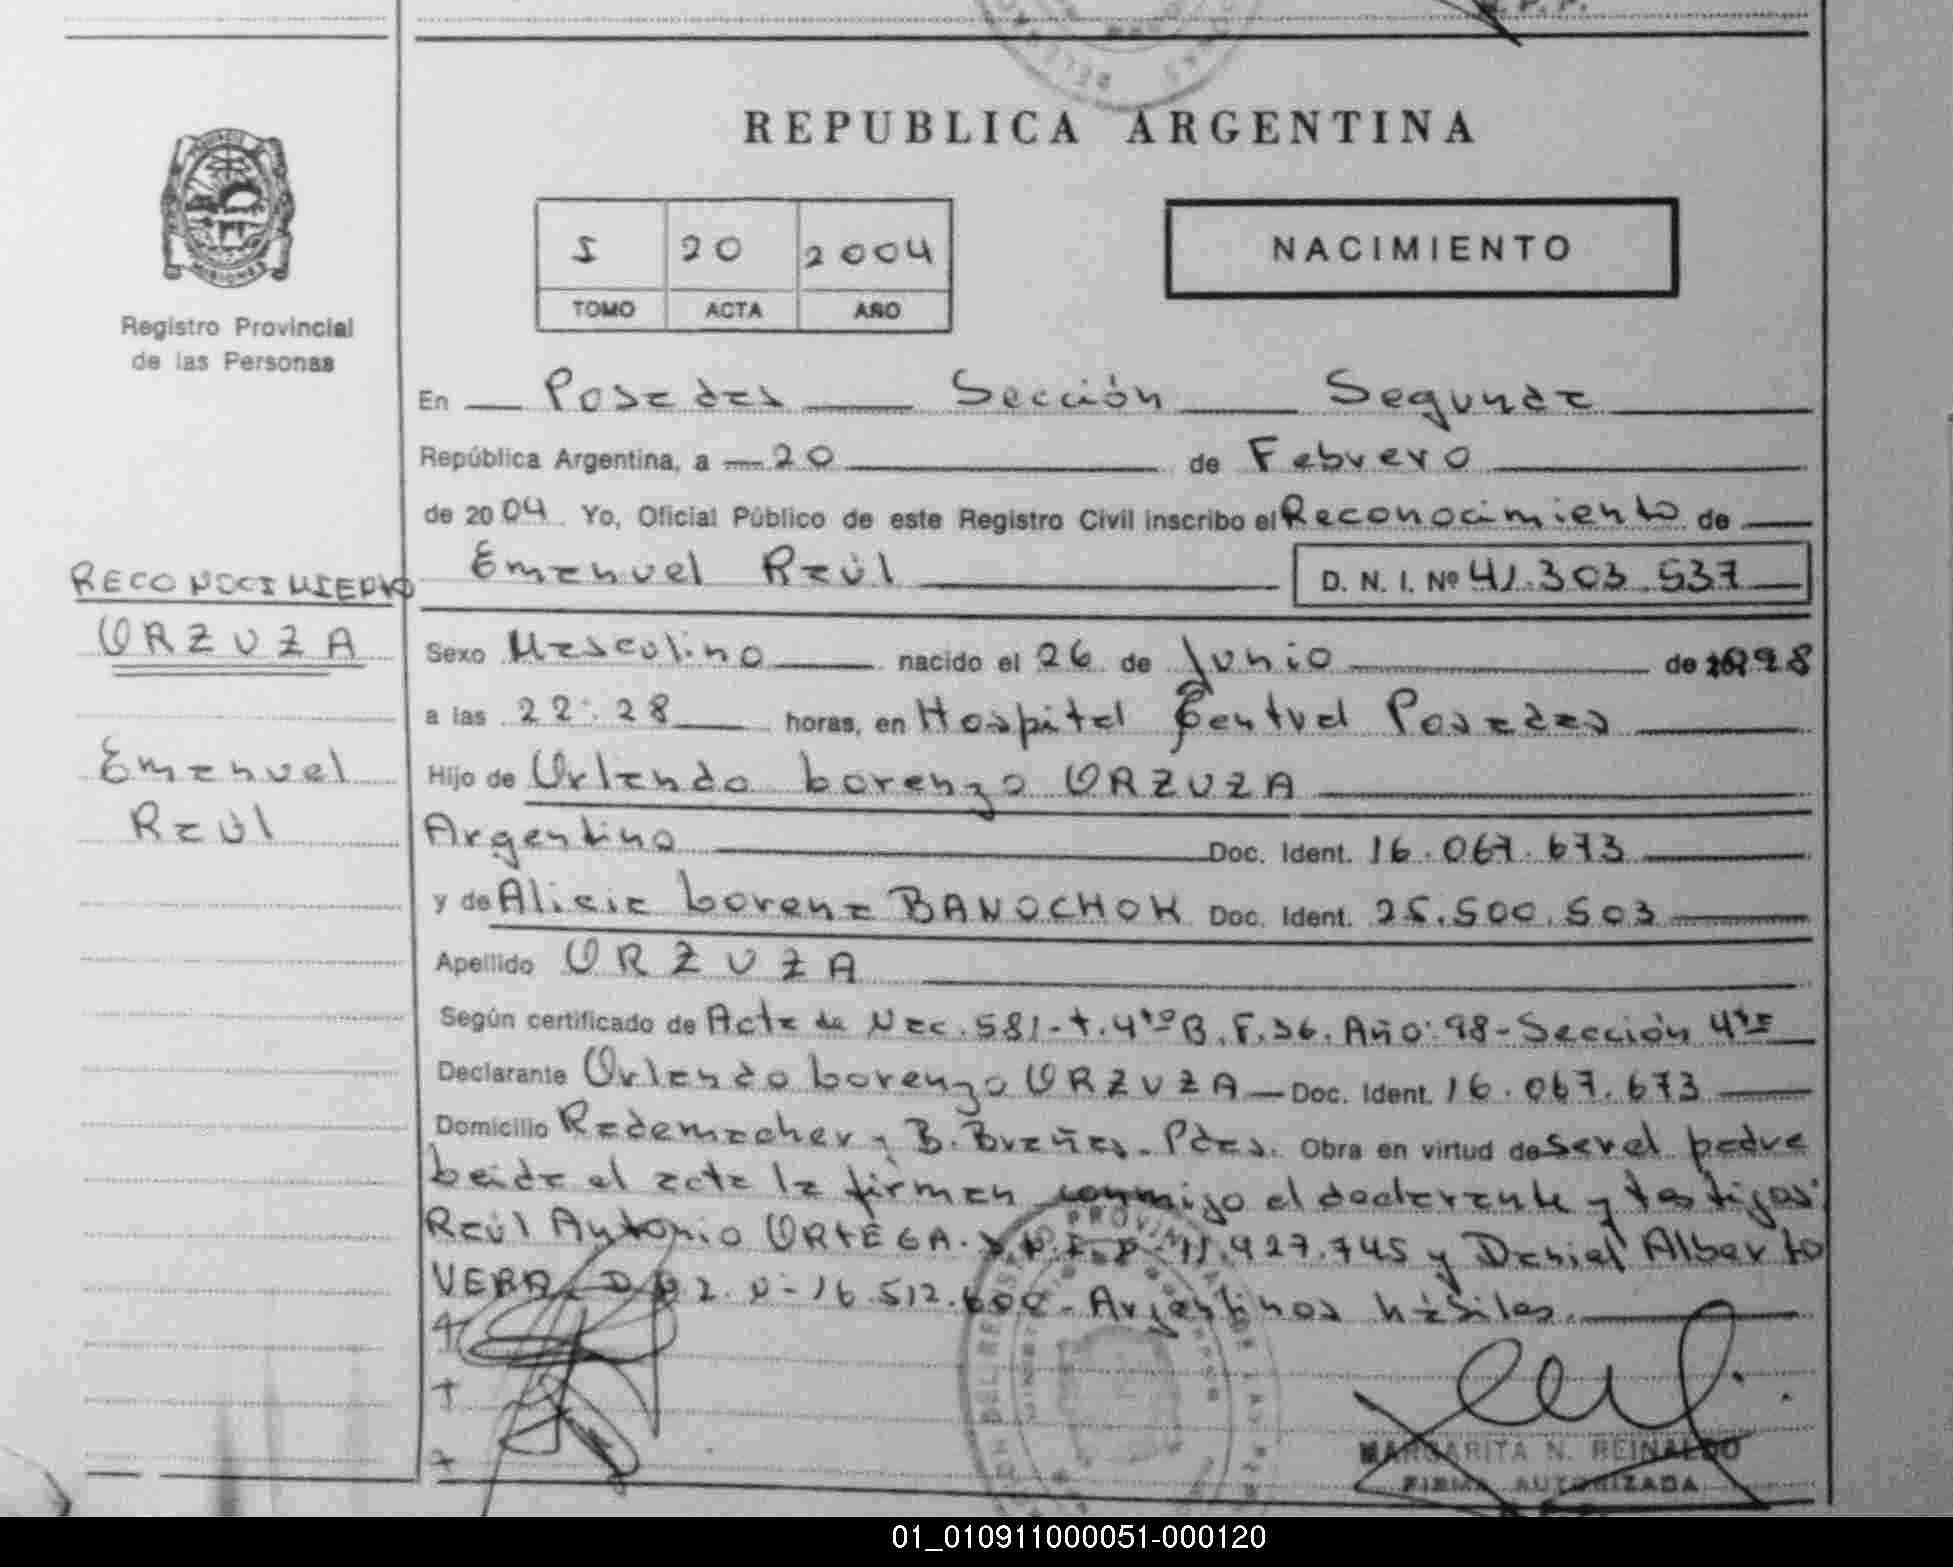 REPUBLICA ARGENTINA
I 20 2004
TOMO ACTA AÑO
NACIMIENTO
Registro Provincial
de las Personas
En Posadas Sección Segunda
República Argentina, a 20 de Febrero
de 2004 Yo, Oficial Público de este Registro Civil inscribo el Reconocimiento de
Emanuel Raúl D. N. I. Nº 41.303.537
RECONOCIMIENTO
URZUZA
Emanuel
Raúl
Sexo Masculino nacido el 26 de Junio de 1998
a las 22:28 horas, en Hospital Central Posadas
Hijo de Orlando Lorenzo URZUZA
Argentino Doc. Ident. 16.067.673
y de Alicia Lorena BANOCHOK Doc. Ident. 25.500.503
Apellido URZUZA
Según certificado de Acta de Nac. 581-t.4to B. F.36. Año:98-Sección 4ta
Declarante Orlando Lorenzo URZUZA Doc. Ident. 16.067.673
Domicilio Rademacher y B. Brañas. Pdas. Obra en virtud de ser el padre
Leida el acta la firman conmigo el declarante y testigos:
Raúl Antonio ORTEGA. 11.927.745 y Daniel Alberto
VERA D.N.I. Nº 16.512.600 - Argentinos hábiles.
MARGARITA N. REINALDO
FIRMA AUTORIZADA
01_010911000051-000120